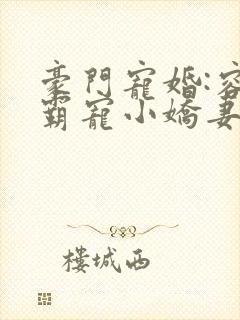 豪門寵婚:容
霸寵小嬌妻
樓城西